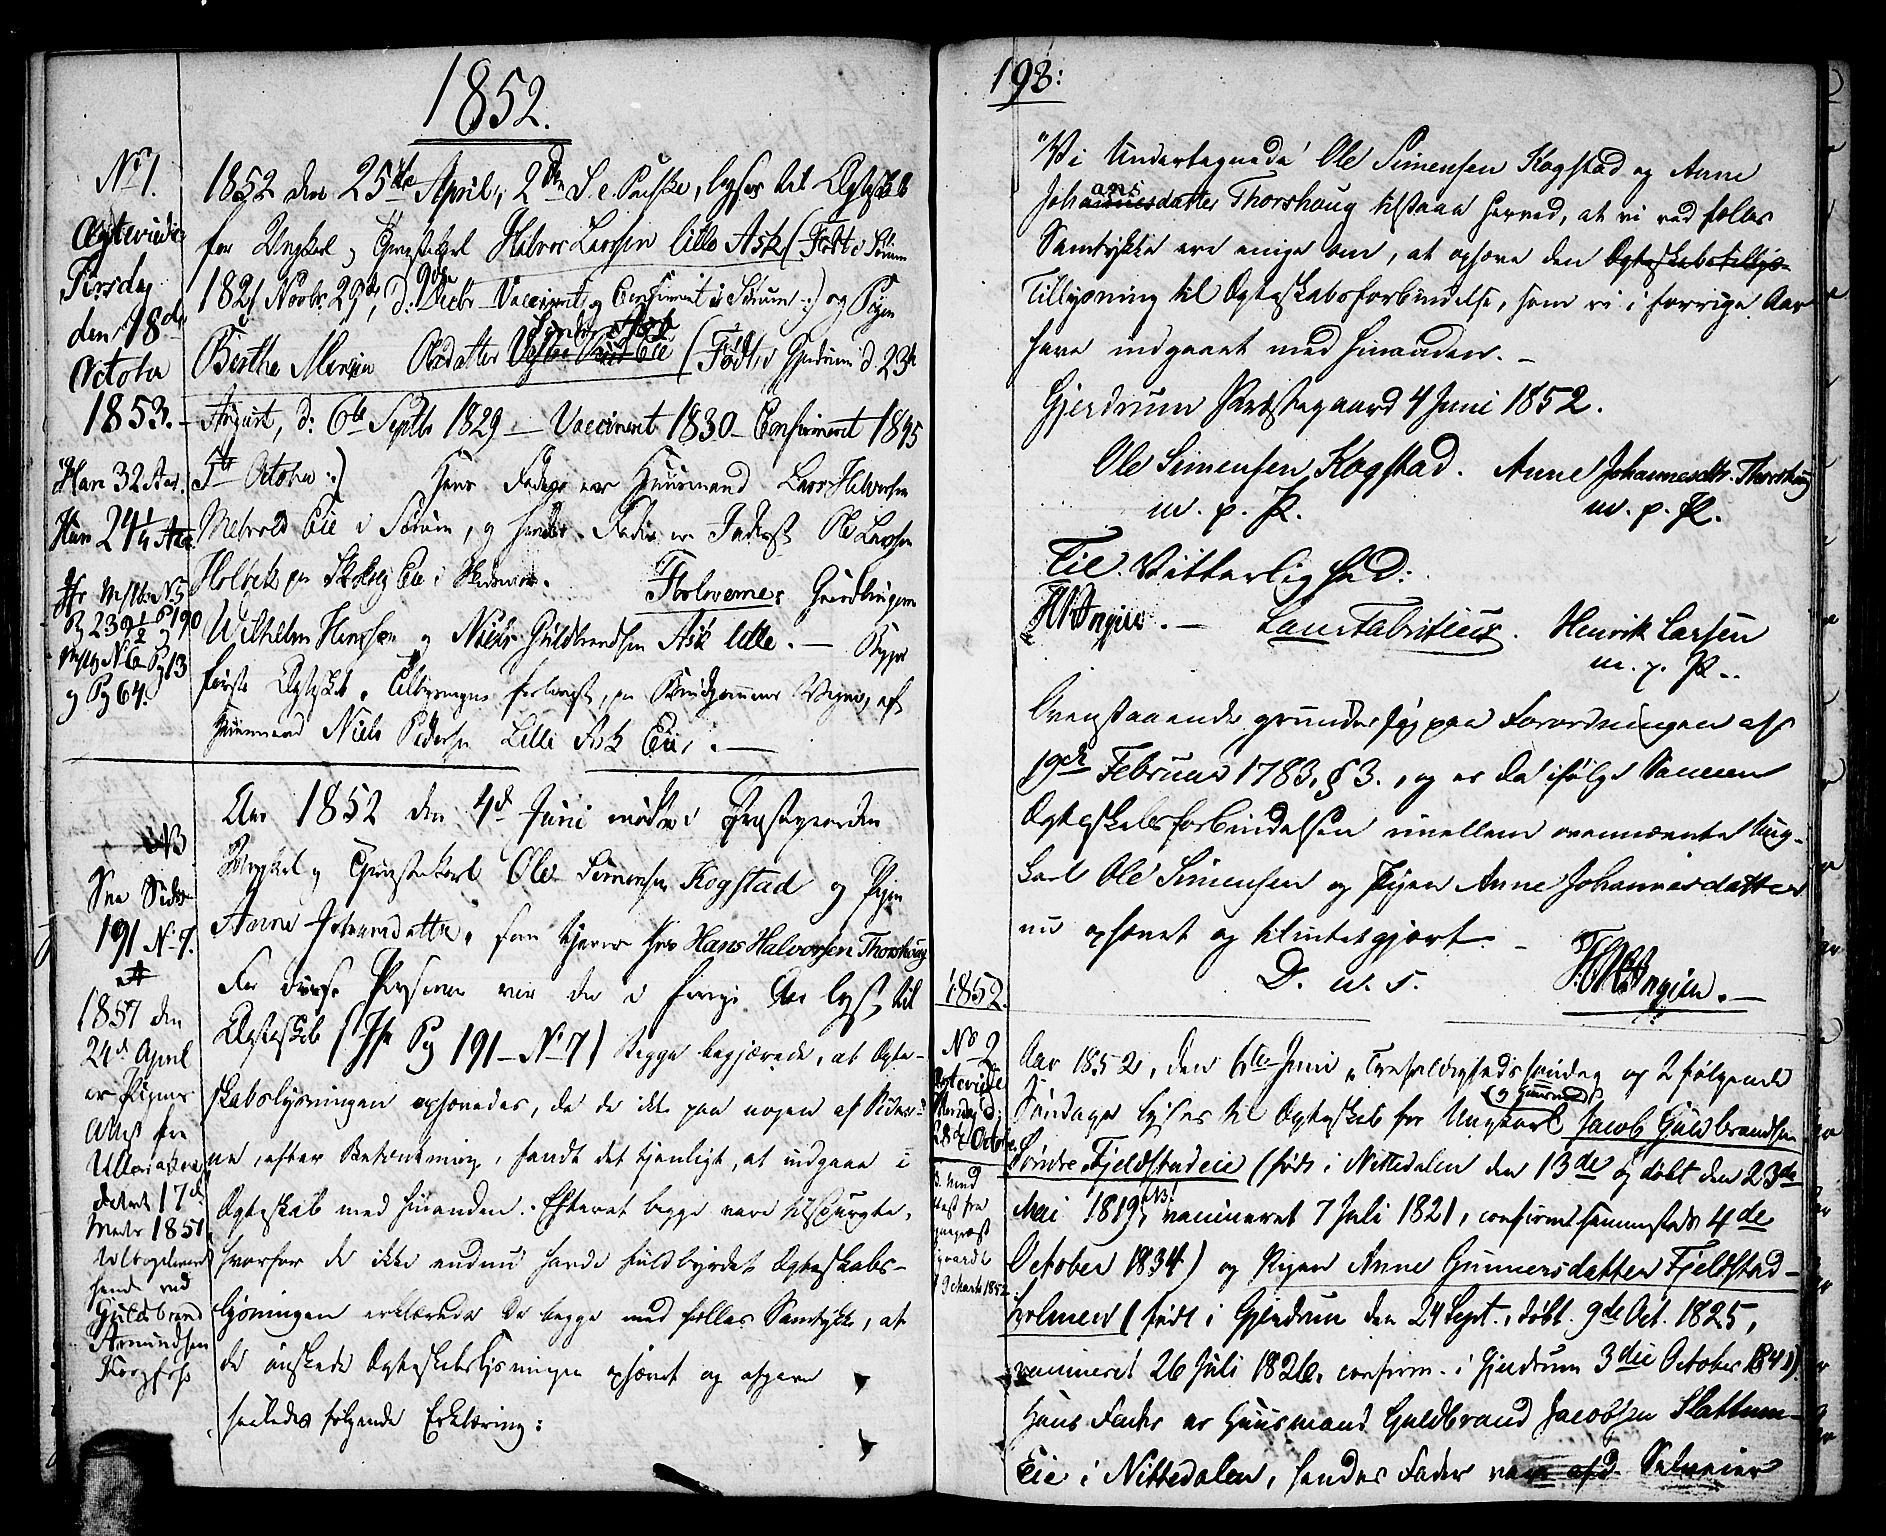 1852.
No 1.
Ægteviede
Tirsdag
den 18de
Octobr
1853.
Han 32 Aar.
Hun 24 1/4 Aar
1852 den 25de April, 2den S. e. Paaske, lyses til Ægteskab
for Ungkarl og Tjenestekarl Halvor Larsen lille Ask (Født i Sørum
1821 Novbr 29de, d: 9de Decbr Vaccineret og Confirmeret i Sørum :) og Pigen
Søndre Ask
Berthe Maria Olsdatter (Født i Gjerdrum d 23de
August, d: 6te Septbr 1829 — Vaccineret 1830 — Confirmeret 1845
5te October :) Hans Fader er Huusmand Lars Halvorsen
Eie i Sørum, og hendes Fader er Inderst Ole Larsen
Holbek paa Eie i Skedsmoe. Forloverne: Gaardbrugerne
Wilhelm Hansen og Niels Guldbrandsen Ask lille. — Begges
første Ægteskab. Tillysningen forlangt, paa Brudgommens Vegne, af
Huusmand Niels Pedersen Lille Ask Eie. —
NB
See Side
191 No 7.
1857 den
24de April
er Pigens
Attest fra
Ullensaker
dateret 17de
Marts 1857
hende ved
Guldbrand
Amundsen
Aar 1852 den 4de Juni mødte i Præstegaarden
Ungkarl og Tjenestekarl Ole Simensen Kogstad og Pigen
Anne Johansdatter, som tjener hos Hans Halvorsen Thorshoug
For disse Personer var der i forrige Aar lyst til
Ægteskab (Jfr Pg 191 — No 7) Begge begjærede, at Ægte-
skabslysningen ophævedes, da de ikke paa nogen af Sider-
ne, efter Betænkning, fandt det tjenligt, at indgaae i
Ægteskab med hinanden. Efterat begge vare tilspurgte,
hvorfor de ikke endnu havde fuldbyrdet Ægteskabs-
lysningen erklærede de begge med fælles Samtykke, at
de ønskede Ægteskabslysningen ophævet og afgave
saaledes følgende Erklæring:
198:
"Vi Undertegnede Ole Simensen Kogstad og Anne
ans
Johannesdatter Thorshoug tilstaae herved, at vi ved fælles
Samtykke ere enige om, at ophæve den Ægteskabstillys-
Tillysning til Ægteskabsforbindelse, som vi i forrige Aar
have indgaaet med hinanden. —
Gjerdrum Præstegaard 4 Juni 1852.
Ole Simensen Kogstad. Anne Johannesdtr. Thorshoug
m. p. P. m. p. P.
Til Vitterlighed:
H Angell. — Lars Fabritius. Henrik Larsen
m. p. P.
Ovenstaaende grunder sig paa Forordningen af
19de Februar 1783, § 3., og er da ifølge Samme
Ægteskabsforbindelsen imellem ovennævnte Ung-
karl Ole Simensen og Pigen Anne Johannesdatter
nu ophævet og tilintetgjort. —
D. u. s.
1852.
No 2
Ægteviede
28de Octobr.
Aar 1852, den 6te Juni, Trefoldighedssøndag og 2 følgende
(og Huusmand)
Søndage lyses til Ægteskab for Ungkarl Jacob Guldbrandsen
Søndre Fjeldstadeie (født i Nittedalen den 13de og døbt den 23de
Mai 1819, NB! vaccineret 7 Juli 1821, confirm. sammesteds 4de
October 1834) og Pigen Anne Gunnersdatter Fjeldstad-
holmen (født i Gjerdrum den 24 Sept., døbt 9de Oct. 1825,
vaccineret 26 Juli 1826, confirm. i Gjerdrum 3die October 1841).
Hans Fader er Huusmand Guldbrand Jacobsen Slattum-
Eie i Nittedalen, hendes Fader var afd. Selveier